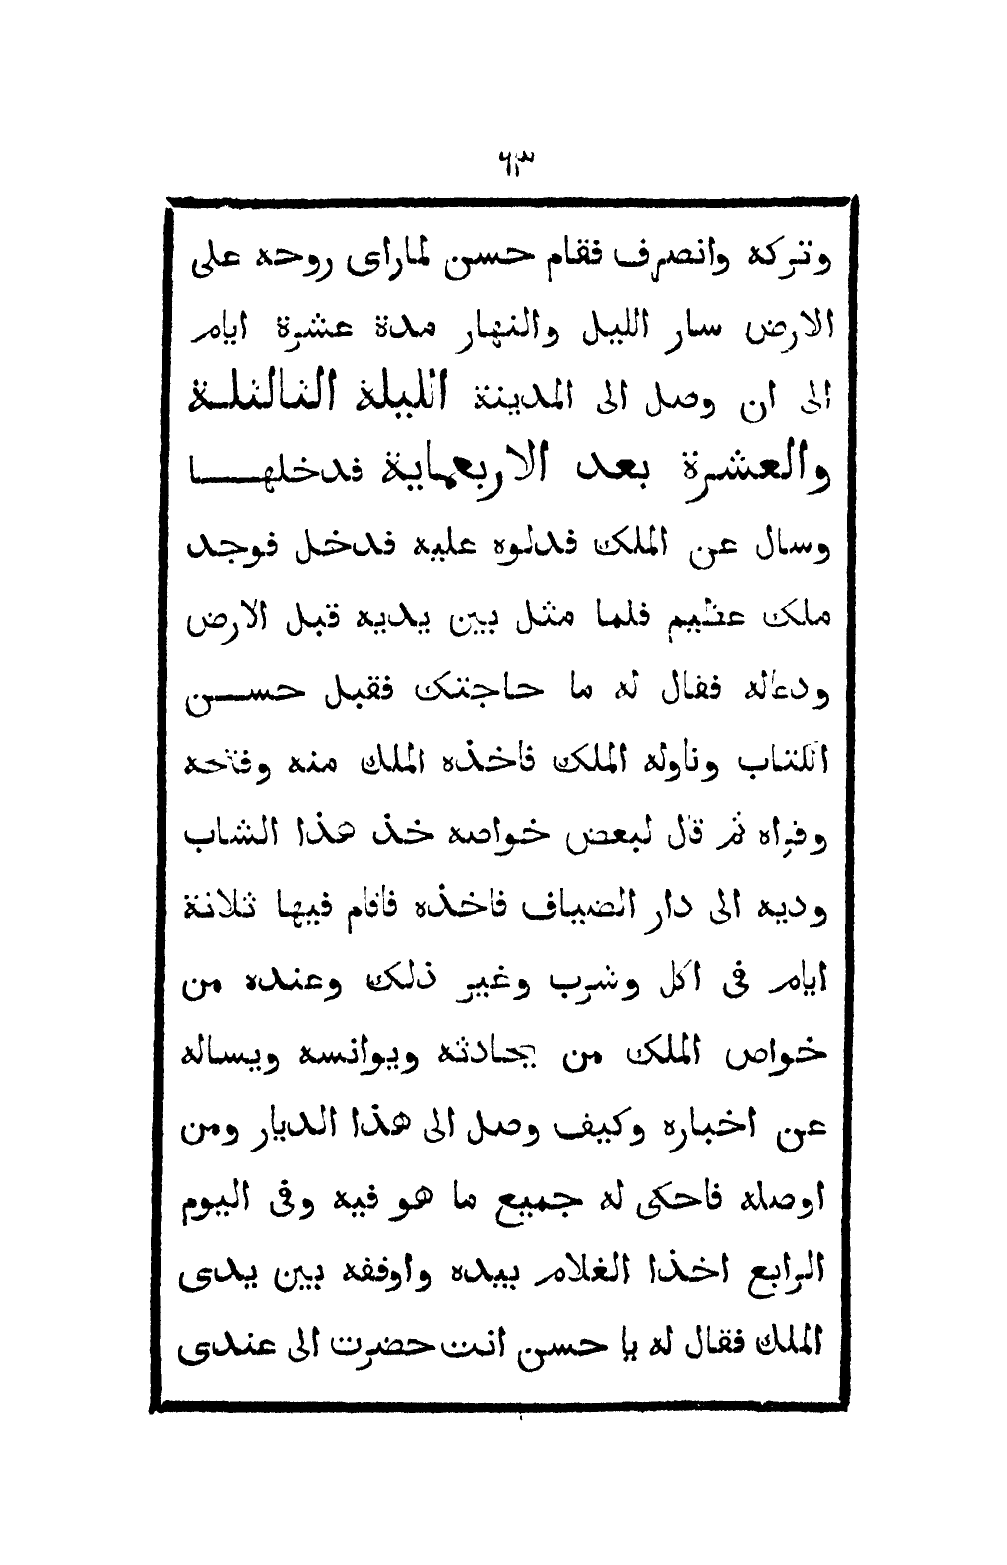 ٦٣
وتركه وانصرف فقام حسن لماراى روحه على
الارض سار الليل والنهار مدة عشرة ايام
الى ان وصل الى المدينة الليلة الثالثلة
والعشرة بعد الاربعماية فدخلهــــا
وسال عن الملك فدلوه عليه فدخل فوجد
ملك عظيم فلما مثل بين يديه قبل الارض
ودعاله فقال له ما حاجتك فقبل حســن
الكتاب وناوله الملك فاخذه الملك منه وفتحه
وقراه ثم قال لبعض خواصه خذ هذا الشاب
وديه الى دار الضياف فاخذه فاقام فيها ثلاثة
ايام فى اكل وشرب وغير ذلك وعنده من
خواص الملك من يحادثه ويوانسه ويساله
عن اخباره وكيف وصل الى هذا الديار ومن
اوصله فاحكى له جميع ما هو فيه وفى اليوم
الرابع اخذا الغلام بيده واوقفه بين يدى
الملك فقال له يا حسن انت حضرت الى عندى